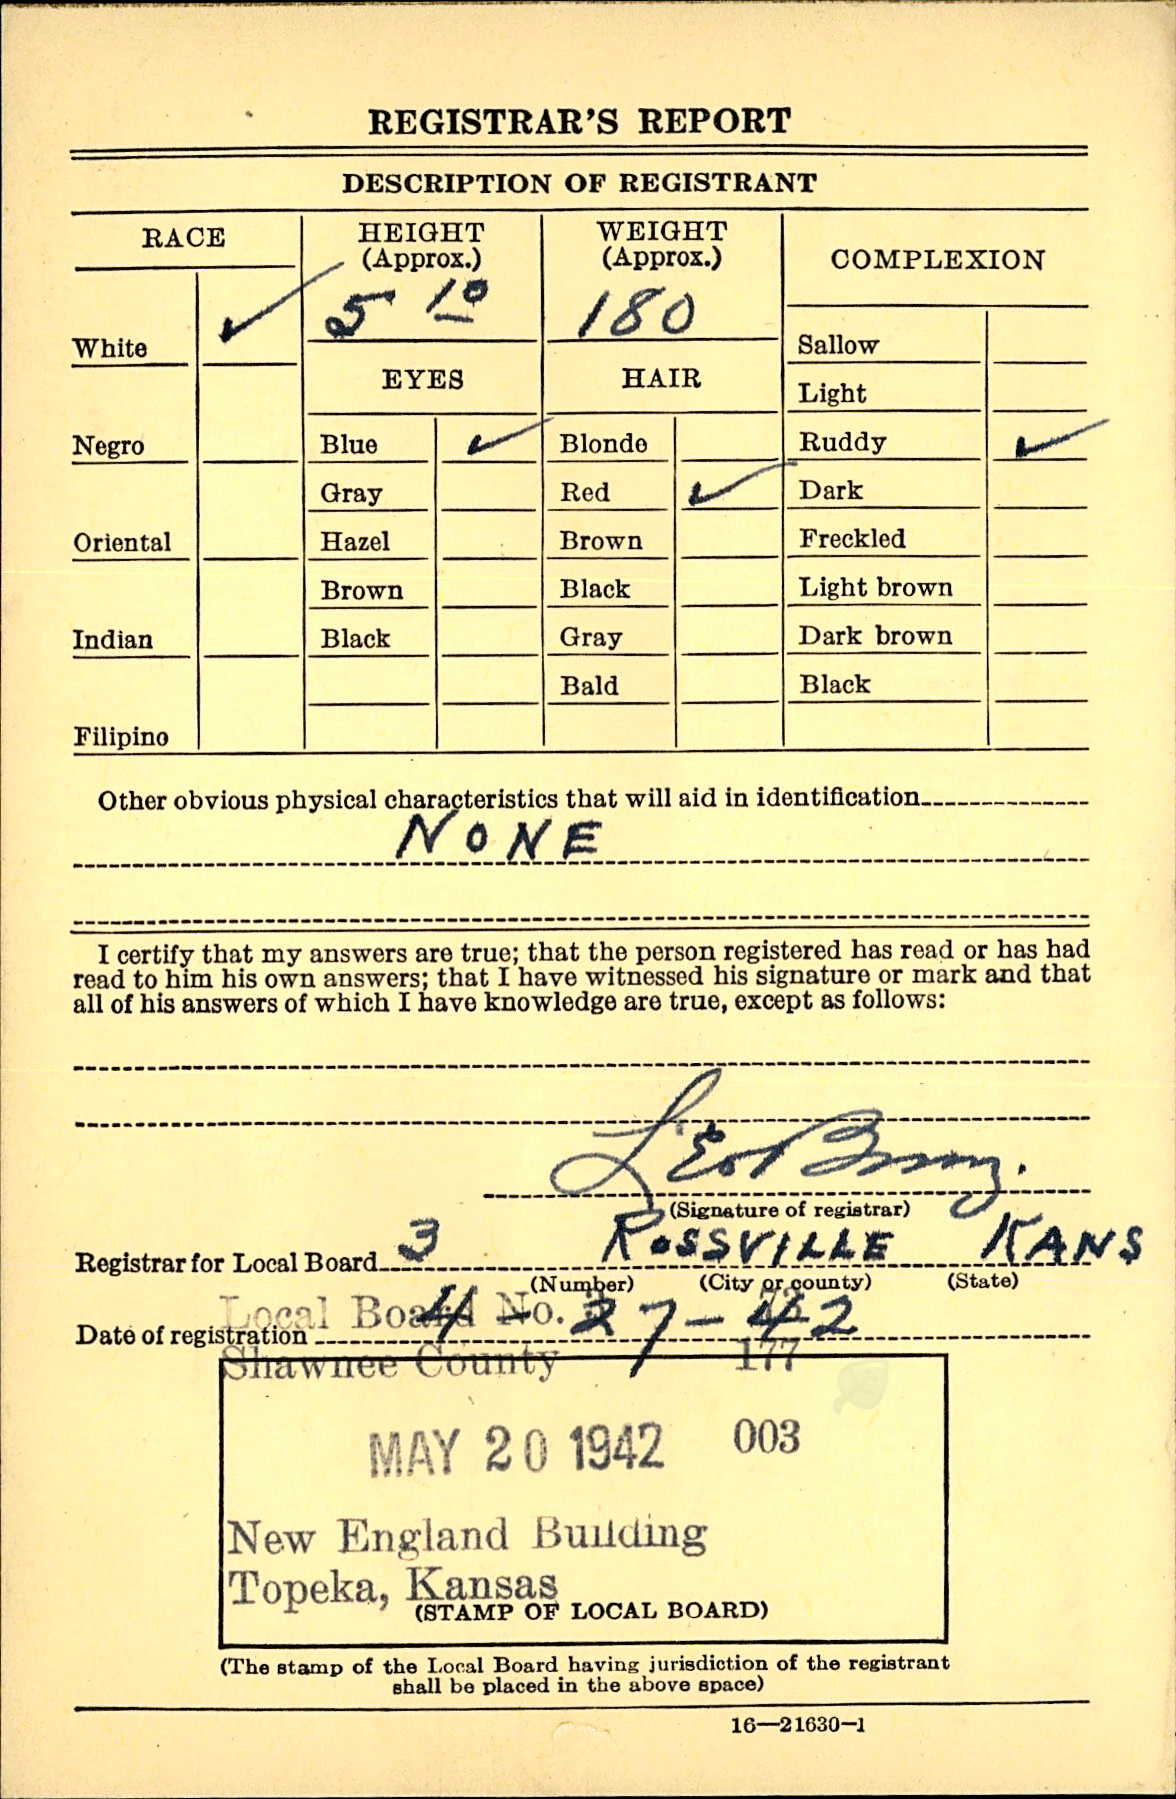 REGISTRAR'S REPORT
DESCRIPTION OF REGISTRANT
RACE
HEIGHT
(Approx.)
5 10
WEIGHT
(Approx.)
180
COMPLEXION
White ✓
EYES
HAIR
Sallow
Light
Negro
Blue ✓
Blonde
Ruddy ✓
Gray
Red ✓
Dark
Oriental
Hazel
Brown
Freckled
Brown
Black
Light brown
Indian
Black
Gray
Dark brown
Bald
Black
Filipino
Other obvious physical characteristics that will aid in identification
NONE
I certify that my answers are true; that the person registered has read or has had
read to him his own answers; that I have witnessed his signature or mark and that
all of his answers of which I have knowledge are true, except as follows:
(Signature of registrar)
Registrar for Local Board 3 ROSSVILLE KANS
(Number) (City or county) (State)
Local Board No. 73
Date of registration 4-27-42
Shawnee County 177
MAY 20 1942 003
New England Building
Topeka, Kansas
(STAMP OF LOCAL BOARD)
(The stamp of the Local Board having jurisdiction of the registrant
shall be placed in the above space)
16—21630-1